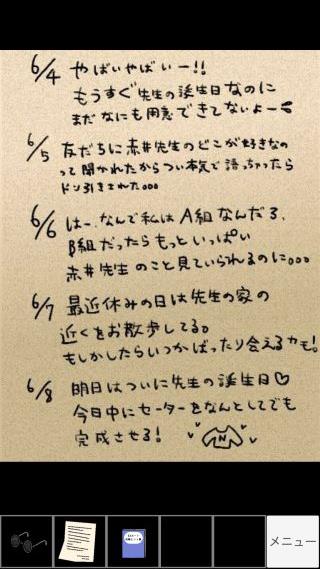 6/4 やばいやばいー!!
もうすぐ先生の誕生日なのに
まだなにも用意できてないよー
6/5 友だちに赤井先生のどこが好きなの
って聞かれたからつい本気で語っちゃったら
ドン引きされた。。。
6/6 はー、なんで私はA組なんだろ、
B組だったらもっといっぱい
赤井先生のこと見ていられるのに。。。
6/7 最近休みの日は先生の家の
近くをお散歩してる。
もしかしたらいつかばったり会えるカモ!
6/8 明日はついに先生の誕生日♡
今日中にセーターをなんとしてでも
完成させる!
N
メニュー